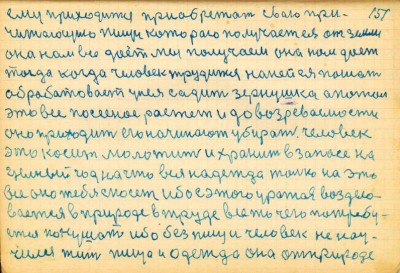 ему приходится приабретат свою при- 157
читающую пищу которого получается от земли
она нам всё дает мы получаем она нам дает
тогда когда человек трудится на ней пошет
обрабатовает сеея садит зернушка а потом
это все посеяное растет и до возреваемости
оно приходит его начинают убират. человек
это косит молотит и хранит в запасе на
целый год на что вся надежда толко на это
все оно тебя спосет ибо с этого уражая воздело-
вается в природе в труде всего чего потребу-
ется покушат ибо без пищи человек не нау-
чился жит пища и одежда она от природе